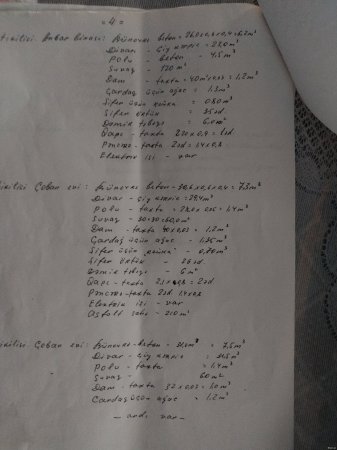 - 4 -
tikilisi Anbar binası: Bünövrə beton - 26,0x0,6x0,4 = 6,2 m³
Divar - çiy kərpic = 27,0 m³
Polu - beton - 4,5 m³
Suvaq - 120 m²
Dam - taxta = 40 m² x0,03 = 1,2 m³
Qardaş üçün ağac = 1,3 m³
Şifer üçün reyka = 0,80 m³
Şifer örtük = 35 əd
Dəmir təbəqə = 6,0 m²
Qapı - taxta 2,10 x 0,9 = 1 əd
Pəncrə - taxta 2 əd 1,4 x 0,8
Elektrik işi - var
tikilisi Çoban evi: Bünövrə beton - 30,6 x 0,6 x 0,4 = 7,3 m³
Divar - çiy kərpic = 29,4 m³
Polu - taxta = 28,0 x 0,05 = 1,4 m³
Suvaq - 30+30 = 60,0 m²
Dam - taxta 40 x 0,03 = 1,2 m³
Qardaş üçün ağac = 1,35 m³
Şifer üçün reyka = 0,80 m³
Şifer örtük - 26 əd
Dəmir təbəqə - 6 m²
Qapı - taxta = 2 əd
Pəncrə - taxta 2 əd 1,4 x 0,8
Elektrik işi - var
Asfalt sahə - 210 m²
tikilisi Çoban evi: Bünövrə - beton - = 7,5 m³
Divar - çiy kərpic = m³
Polu - taxta = 1,4 m³
Suvaq - 60 m²
Dam - taxta - 32 x 0,03 = 1,0 m³
Qardaş üçün ağac = 1,2 m³
- ardı var -